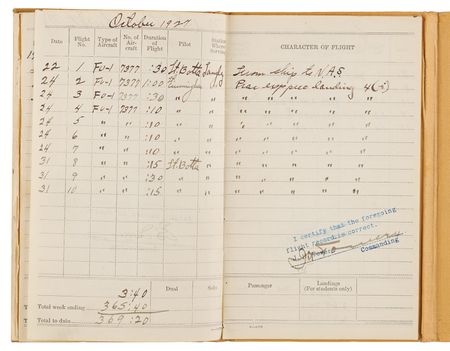 October 1927
Date Flight No. Type of Aircraft No. of Aircraft Duration of Flight Pilot Station Where Serving CHARACTER OF FLIGHT
22 1 FU-1 7377 :30 Lt. Botta From ship to N.A.S
24 2 FU-1 7377 1:00 " landing 4
24 3 FU-1 7377 :30 " " " " " "
24 4 FU-1 7377 :10 " " " " " "
24 5 " " :10 " " " " " "
24 6 " " :10 " " " " " "
24 7 " " :10 " " " " " "
31 8 " " :15 Lt Botta " " " " "
31 9 " " :30 " " " " " "
31 10 " " :15 " " " " " "
I certify that the foregoing
flight record is correct.
Commanding
3:40 Dual Solo Passenger Landings
(For students only)
Total week ending 365:40
Total to date 369:20